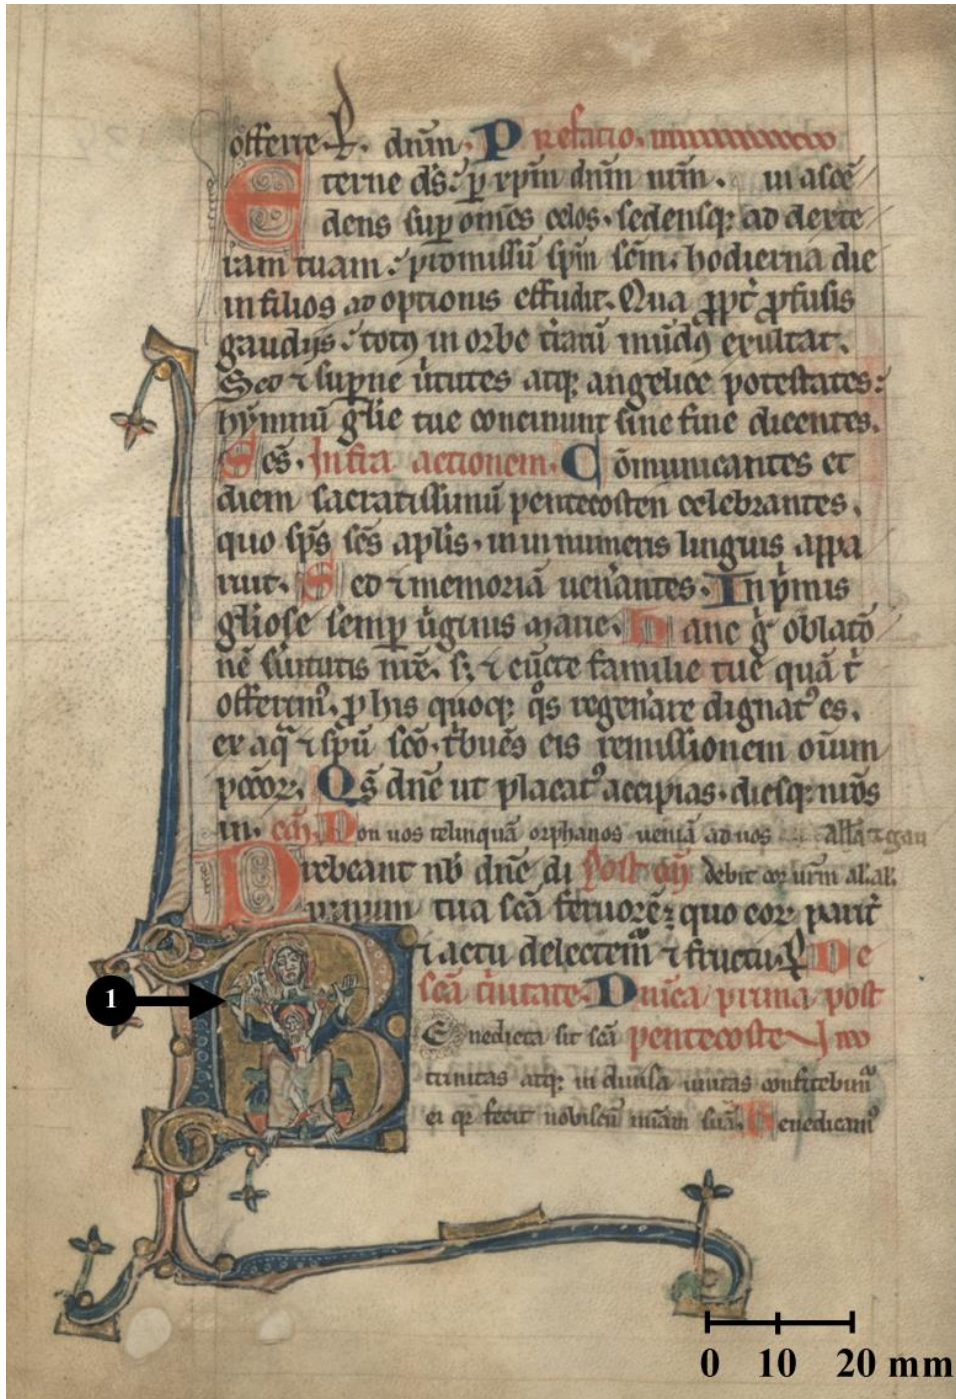 offerre. P. dnm. Prefatio.
Eterne ds. p xpm dnm nrm. Qui ascē
dens sup omēs celos. sedensq; ad dexte
ram tuam. promissū spm scm. hodierna die
in filios adoptionis effudit. Qua ppt pfusis
gaudiis. totꝰ in orbe t̄raꝝ mūdꝰ exultat.
Sed ⁊ supne ūtutes atq; angelice potestates:
hymnū glie tue concinunt sine fine dicentes.
Scs. Infra actionem. Cōmunicantes et
diem sacratissimū pentecosten celebrantes.
quo sps scs aplis. in innumeris linguis appa
ruit. Sed ⁊ memoriā uenāntes. In pmis
gliose semp uginis marie. Hanc g oblatō
nē seruitutis nrē. s; ⁊ cūcte familie tue quā t
offerimꝰ. p his quoq; qs regenāre dignatꝰ es.
ex aq ⁊ spū scō. tbuēs eis remissionem oīum
pccōꝝ. Qs dnē ut placatꝰ accipias. diesq; nrōs
in. Non uos relinquā orphanos ueniā ad uos alla ⁊ gau
Prebeant nb dnē di Post debit cor urm al. al.
uinum tua scā feruorē: quo eoꝝ parit
⁊ actu delectemʳ ⁊ fructu. P De
scā trinitate. Dnica prima post
Benedicta sit scā pentecoste
trinitas atq; indiuisa unitas confitebimʳ
ei qr fecit nobiscū miam suā. Benedicamꝰ
1
0 10 20 mm